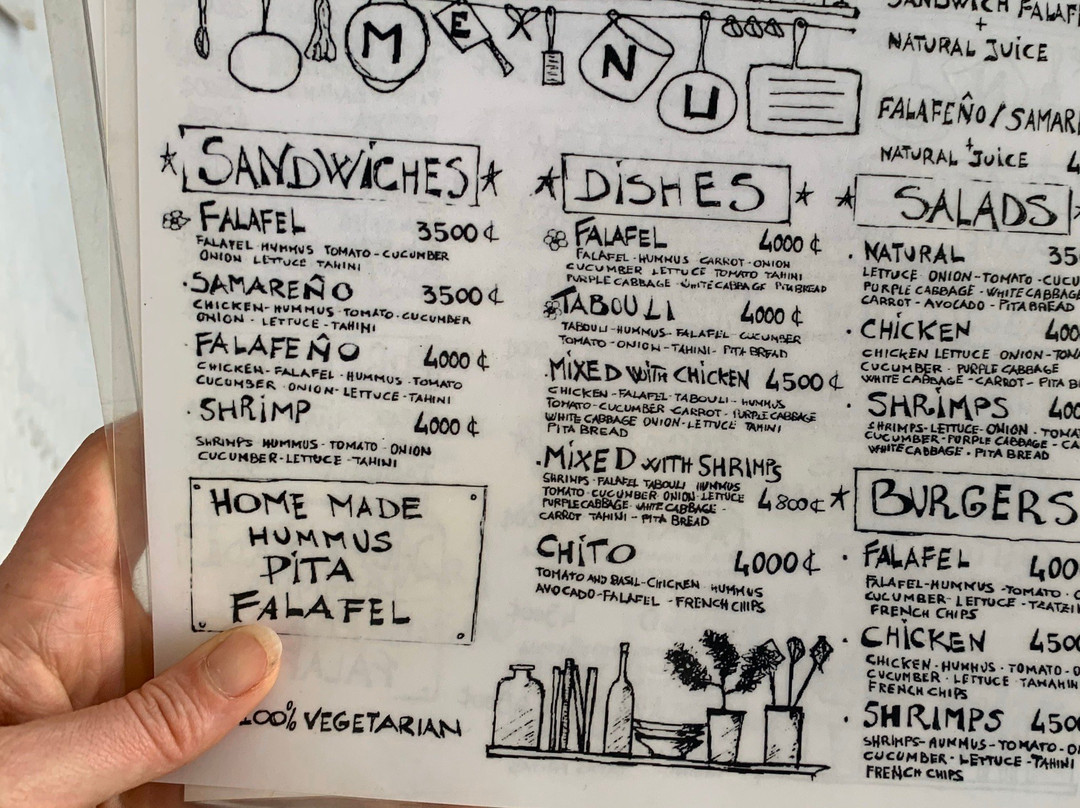 MENU
SANDWICHES
FALAFEL 3500 ₡
FALAFEL-HUMMUS TOMATO-CUCUMBER
ONION LETTUCE TAHINI
SAMAREÑO 3500 ₡
CHICKEN-HUMMUS-TOMATO-CUCUMBER
ONION-LETTUCE-TAHINI
FALAFEÑO 4000 ₡
CHICKEN-FALAFEL-HUMMUS-TOMATO
CUCUMBER-ONION-LETTUCE-TAHINI
SHRIMP 4000 ₡
SHRIMPS HUMMUS-TOMATO-ONION
CUCUMBER-LETTUCE-TAHINI
HOME MADE
HUMMUS
PITA
FALAFEL
100% VEGETARIAN
DISHES
FALAFEL 4000 ₡
FALAFEL-HUMMUS CARROT-ONION
CUCUMBER LETTUCE TOMATO TAHINI
PURPLE CABBAGE-WHITE CABBAGE PITA BREAD
TABOULI 4000 ₡
TABOULI-HUMMUS-FALAFEL-CUCUMBER
TOMATO-ONION-TAHINI-PITA BREAD
MIXED WITH CHICKEN 4500 ₡
CHICKEN-FALAFEL-TABOULI-HUMMUS
TOMATO-CUCUMBER-CARROT-PURPLE CABBAGE
WHITE CABBAGE ONION-LETTUCE TAHINI
PITA BREAD
MIXED WITH SHRIMPS
SHRIMPS-FALAFEL TABOULI HUMMUS
TOMATO-CUCUMBER ONION-LETTUCE 4800 ₡
PURPLE CABBAGE-WHITE CABBAGE-
CARROT TAHINI-PITA BREAD
CHITO 4000 ₡
TOMATO AND BASIL-CHICKEN HUMMUS
AVOCADO-FALAFEL-FRENCH CHIPS
SANDWICH FALAF
+
NATURAL JUICE
FALAFEÑO/SAMAR
+
NATURAL JUICE 4
SALADS
NATURAL 35
LETTUCE ONION-TOMATO-CUCU
PURPLE CABBAGE-WHITE CABBAGE
CARROT-AVOCADO-PITA BREAD
CHICKEN 400
CHICKEN LETTUCE ONION-TOMA
CUCUMBER-PURPLE CABBAGE
WHITE CABBAGE-CARROT-PITA B
SHRIMPS 400
SHRIMPS-LETTUCE-ONION-TOMA
CUCUMBER-PURPLE CABBAGE-CA
WHITE CABBAGE-PITA BREAD
BURGERS
FALAFEL 400
FALAFEL-HUMMUS-TOMATO-
CUCUMBER-LETTUCE-TZATZI
FRENCH CHIPS
CHICKEN 450
CHICKEN-HUMMUS-TOMATO-O
CUCUMBER-LETTUCE TAHAHIN
FRENCH CHIPS
SHRIMPS 450
SHRIMPS-HUMMUS-TOMATO-O
CUCUMBER-LETTUCE-TAHINI
FRENCH CHIPS